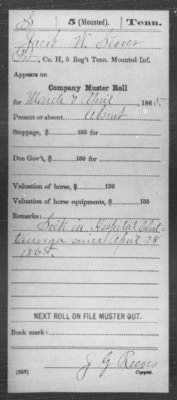 S 5 (Mounted). Tenn.
Jacob W. Stover
Pvt, Co. H, 5 Reg't Tenn. Mounted Inf.
Appears on
Company Muster Roll
for March & April, 1865.
Present or absent Absent
Stoppage, $ 100 for
Due Gov't, $ 100 for
Valuation of horse, $ 100
Valuation of horse equipments, $ 100
Remarks:
Sick in Hospital Chat-
tanooga since April 28
1865.
NEXT ROLL ON FILE MUSTER OUT.
Book mark:
J. G. Reeves
(358) Copyist.